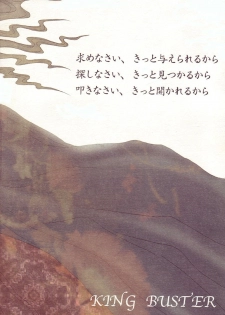 求めなさい、きっと与えられるから
探しなさい、きっと見つかるから
叩きなさい、きっと開かれるから
KING BUSTER